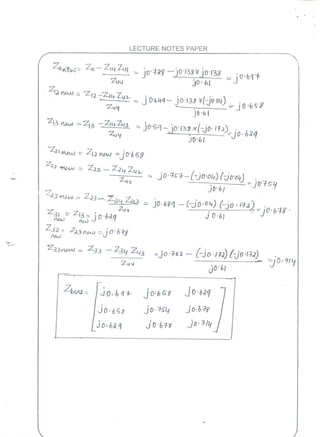 LECTURE NOTES PAPER
Z11new = Z11 - Z14 Z41 / Z44 = j0.728 - j0.138 x j0.138 / j0.61 = j0.697
Z12 new = Z12 - Z14 Z42 / Z44 = j0.649 - j0.138 x (-j0.04) / j0.61 = j0.658
Z13 new = Z13 - Z14 Z43 / Z44 = j0.59 - j0.138 x (-j0.172) / j0.61 = j0.629
Z21 new = Z12 new = j0.658
Z22 new = Z22 - Z24 Z42 / Z44 = j0.757 - (-j0.04)(-j0.04) / j0.61 = j0.754
Z23 new = Z23 - Z24 Z43 / Z44 = j0.689 - (-j0.04)(-j0.172) / j0.61 = j0.678
Z31 new = Z13 new = j0.629
Z32 new = Z23 new = j0.678
Z33new = Z33 - Z34 Z43 / Z44 = j0.762 - (-j0.172)(-j0.172) / j0.61 = j0.714
Zbus = [ j0.697 j0.658 j0.629 ]
j0.658 j0.754 j0.678
j0.629 j0.678 j0.714